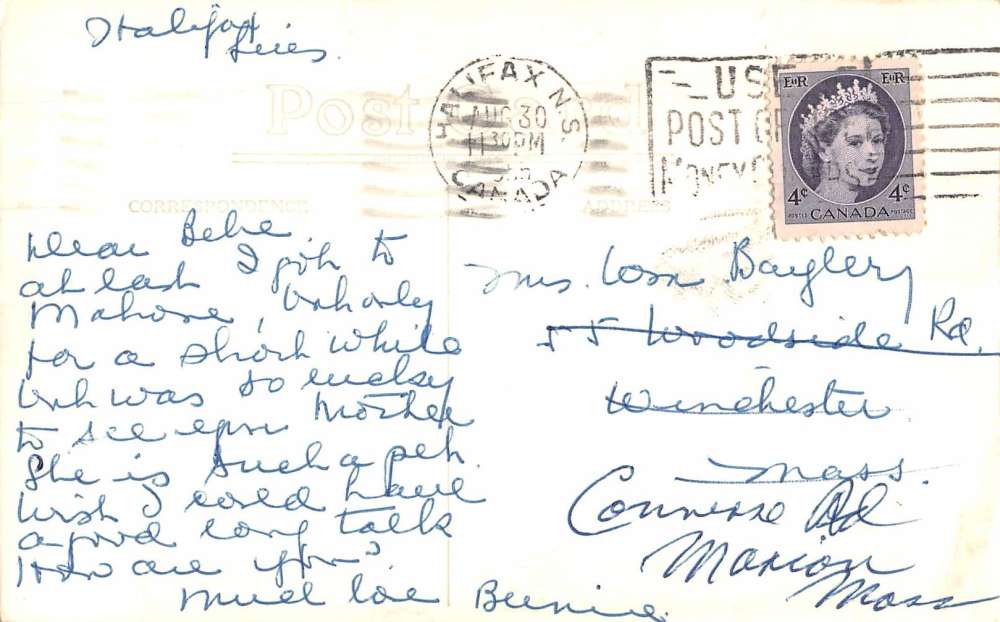 Halifax
Tues.
Post Card
HALIFAX N.S.
AUG 30
11 30 PM
CANADA
USE
POST OF
MONEY O
EIIR EIIR
4¢ 4¢
POSTES CANADA POSTAGE
CORRESPONDENCE
ADDRESS
Dear Bebe,
at last I got to
Mahone, but only
for a short while
but was so lucky
to see your Mother
She is such a pet.
Wish I could have
a good long talk
How are you?
Much love Bernice.
Mrs. Bayley
55 Woodside Rd.
Winchester
Mass.
Converse Rd
Marion
Mass